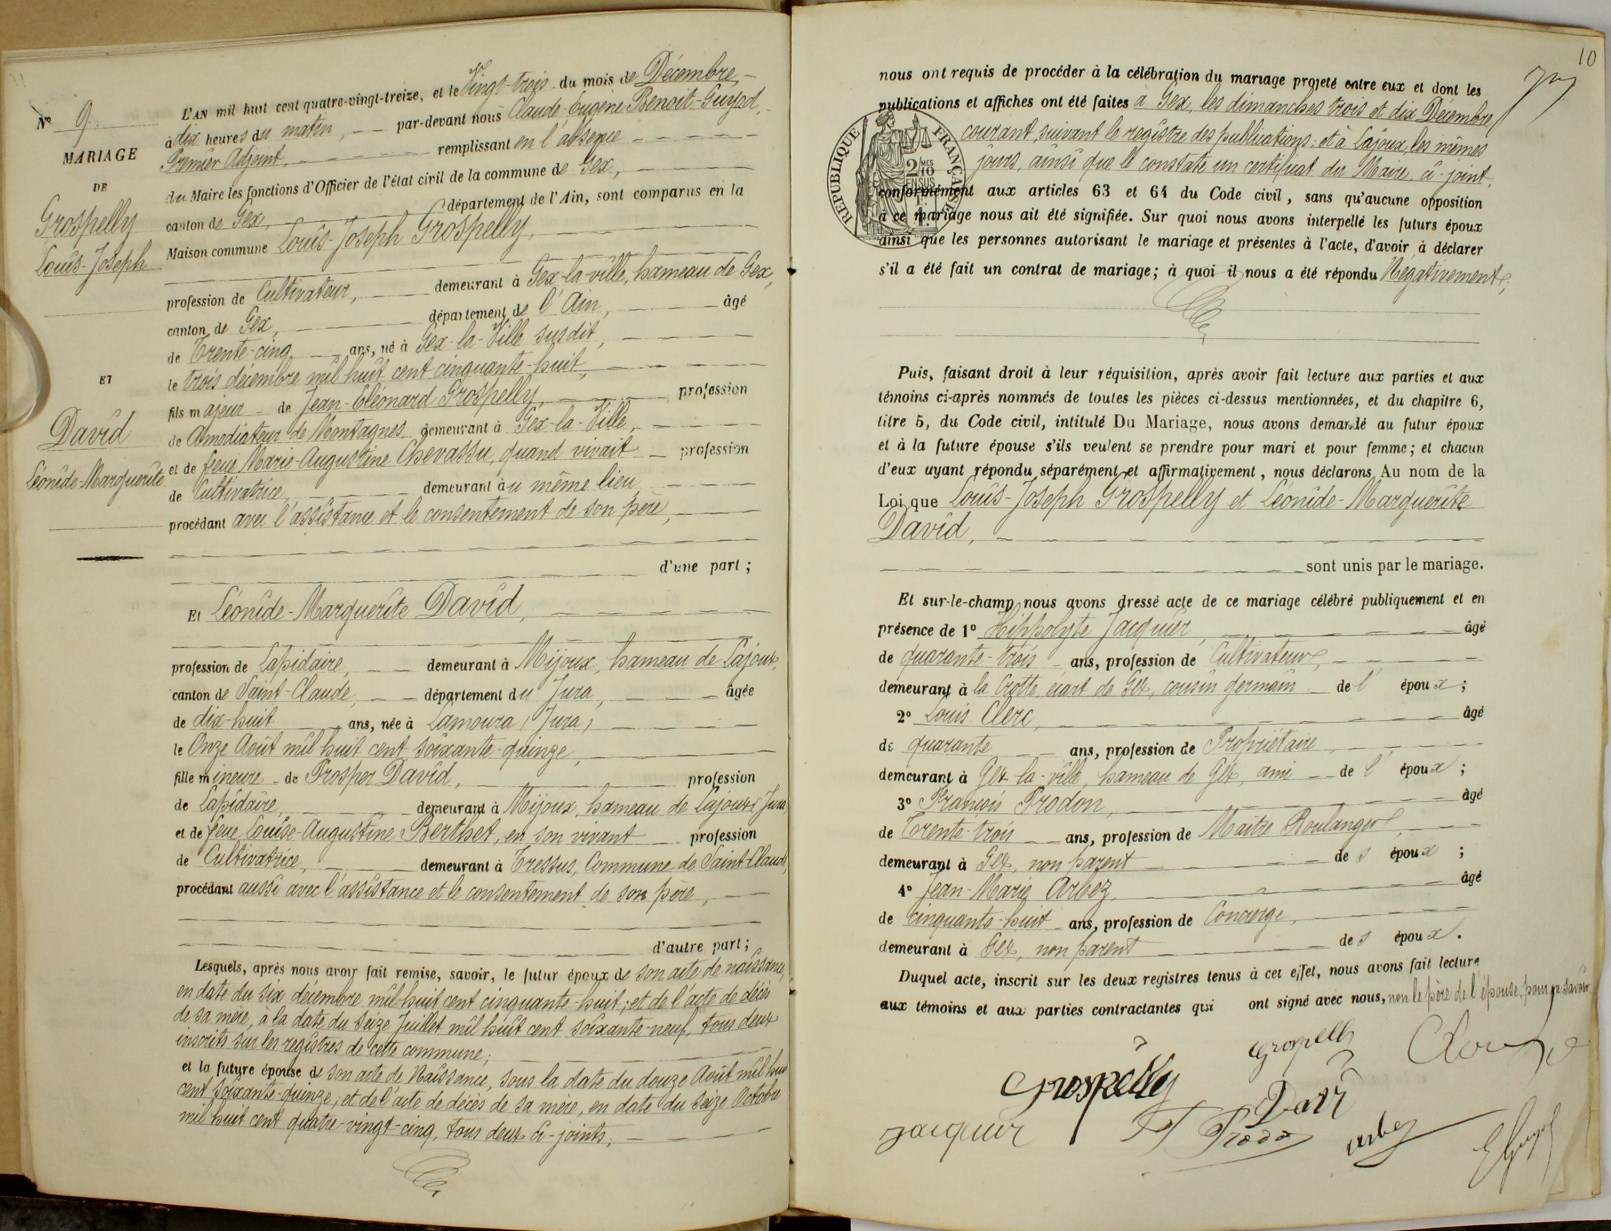 N° 9
MARIAGE
DE
Grospelly
Louis-Joseph
ET
David
Léonide-Marguerite
L'AN mil huit cent quatre-vingt-treize, et le Vingt-trois du mois de Décembre
à dix heures du matin, par-devant nous Claude-Eugène Benoit-Guyod,
Premier Adjoint remplissant en l'absence
du Maire les fonctions d'Officier de l'état civil de la commune de Gex,
canton de Gex, département de l'Ain, sont comparus en la
Maison commune Louis-Joseph Grospelly,
profession de Cultivateur, demeurant à Gex-la-ville, hameau de Gex,
canton de Gex, département de l'Ain, âgé
de Trente-cinq ans, né à Gex-la-Ville susdit,
le trois décembre mil huit cent cinquante-huit,
fils majeur de Jean-Eléonard Grospelly, profession
de Amodiateur de Montagnes demeurant à Gex-la-Ville,
et de feue Marie-Augustine Chevassu, quand vivait profession
de Cultivatrice, demeurant au même lieu,
procédant avec l'assistance et le consentement de son père,
d'une part;
Et Léonide-Marguerite David,
profession de Lapidaire, demeurant à Mijoux, hameau de Lajoux,
canton de Saint-Claude, département du Jura, âgée
de dix-huit ans, née à Lamoura (Jura)
le Onze Août mil huit cent soixante-quinze,
fille mineure de Prosper David, profession
de Lapidaire, demeurant à Mijoux, hameau de Lajoux (Jura)
et de feue Louise-Augustine Berthet, en son vivant profession
de Cultivatrice, demeurant à Tressus, Commune de Saint-Claude,
procédant aussi avec l'assistance et le consentement de son père,
d'autre part;
Lesquels, après nous avoir fait remise, savoir, le futur époux de son acte de naissance,
en date du six décembre mil huit cent cinquante-huit; et de l'acte de décès
de sa mère, à la date du seize Juillet mil huit cent soixante-neuf, tous deux
inscrits sur les registres de cette commune;
et la future épouse de son acte de Naissance, sous la date du douze Août mil huit
cent soixante-quinze, et de l'acte de décès de sa mère, en date du seize Octobre
mil huit cent quatre-vingt-cinq, tous deux ci-joints,
10
nous ont requis de procéder à la célébration du mariage projeté entre eux et dont les
publications et affiches ont été faites à Gex, les dimanches trois et dix Décembre
courant, suivant le registre des publications; et à Lajoux, les mêmes
jours, ainsi que le constate un certificat du Maire ci-joint,
RÉPUBLIQUE FRANÇAISE
conformément aux articles 63 et 64 du Code civil, sans qu'aucune opposition
à ce mariage nous ait été signifiée. Sur quoi nous avons interpellé les futurs époux
ainsi que les personnes autorisant le mariage et présentes à l'acte, d'avoir à déclarer
s'il a été fait un contrat de mariage; à quoi il nous a été répondu Négativement,
Puis, faisant droit à leur réquisition, après avoir fait lecture aux parties et aux
témoins ci-après nommés de toutes les pièces ci-dessus mentionnées, et du chapitre 6,
titre 5, du Code civil, intitulé Du Mariage, nous avons demandé au futur époux
et à la future épouse s'ils veulent se prendre pour mari et pour femme; et chacun
d'eux ayant répondu séparément et affirmativement, nous déclarons, Au nom de la
Loi que Louis-Joseph Grospelly et Léonide-Marguerite
David,
sont unis par le mariage.
Et sur-le-champ nous avons dressé acte de ce mariage célébré publiquement et en
présence de 1° Hippolyte Jacquier, âgé
de quarante-trois ans, profession de Cultivateur,
demeurant à la Crotte, écart de Gex, cousin germain de l'époux;
2° Louis Clerc, âgé
de quarante ans, profession de Propriétaire,
demeurant à Gex-la-ville, hameau de Gex, ami de l'époux;
3° François Prodon, âgé
de Trente-trois ans, profession de Maître Boulanger,
demeurant à Gex, non parent des époux;
4° Jean-Marie Arbez, âgé
de cinquante-huit ans, profession de Concierge,
demeurant à Gex, non parent des époux.
Duquel acte, inscrit sur les deux registres tenus à cet effet, nous avons fait lecture
aux témoins et aux parties contractantes qui ont signé avec nous, non le père de l'épouse, pour ne savoir
Grospelly
Grospelly
David
Jacquier
F Prodon
Arbez